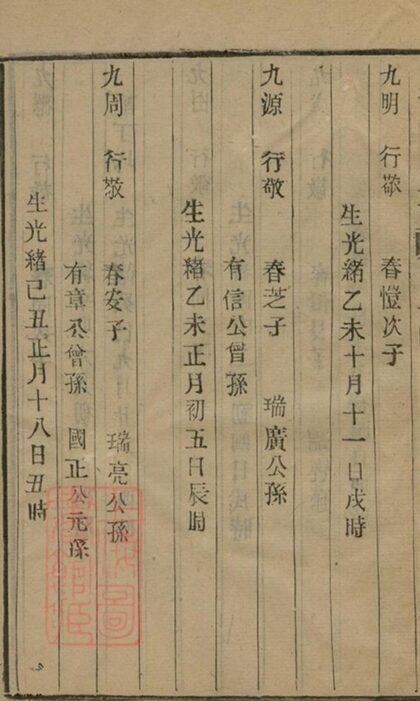 九明 行敬 春愷次子
生光緒乙未十月十一日戌時
九源 行敬 春芝子 瑞廣公孫
有信公曾孫
生光緒乙未正月初五日辰時
九周 行敬 春安子 瑞亮公孫
有章公曾孫 國正公元孫
生光緒己丑正月十八日丑時